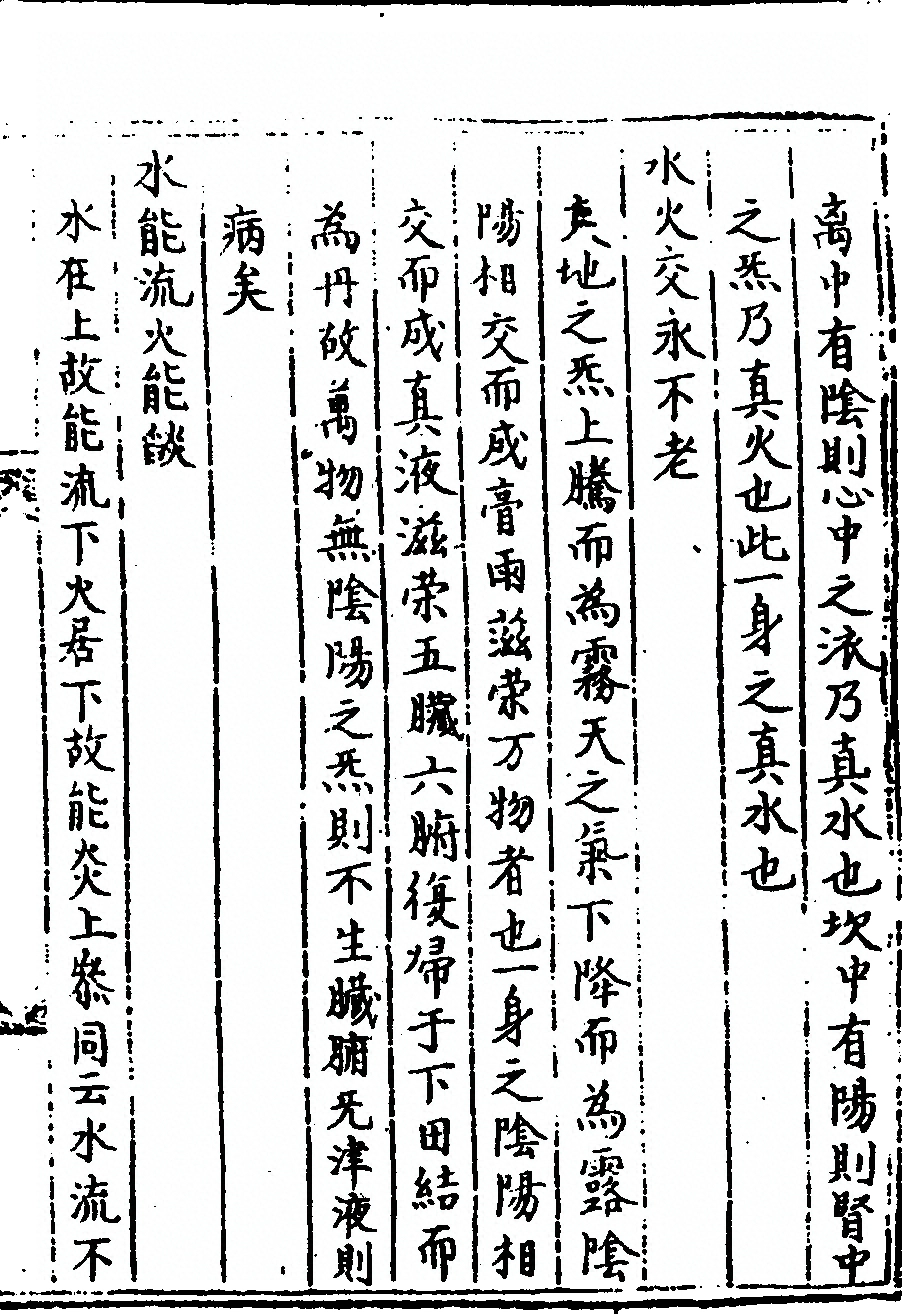 离中有陰則心中之液乃真水也坎中有陽則腎中
之炁乃真火也此一身之真水也
水火交永不老
夫地之炁上騰而為霧天之氣下降而為露陰
陽相交而成膏雨滋荣万物者也一身之陰陽相
交而成真液滋荣五臟六腑復帰于下田結而
為丹故萬物無陰陽之炁則不生臟腑无津液則
病矣
水能流火能燄
水在上故能流下火居下故能炎上叅同云水流不